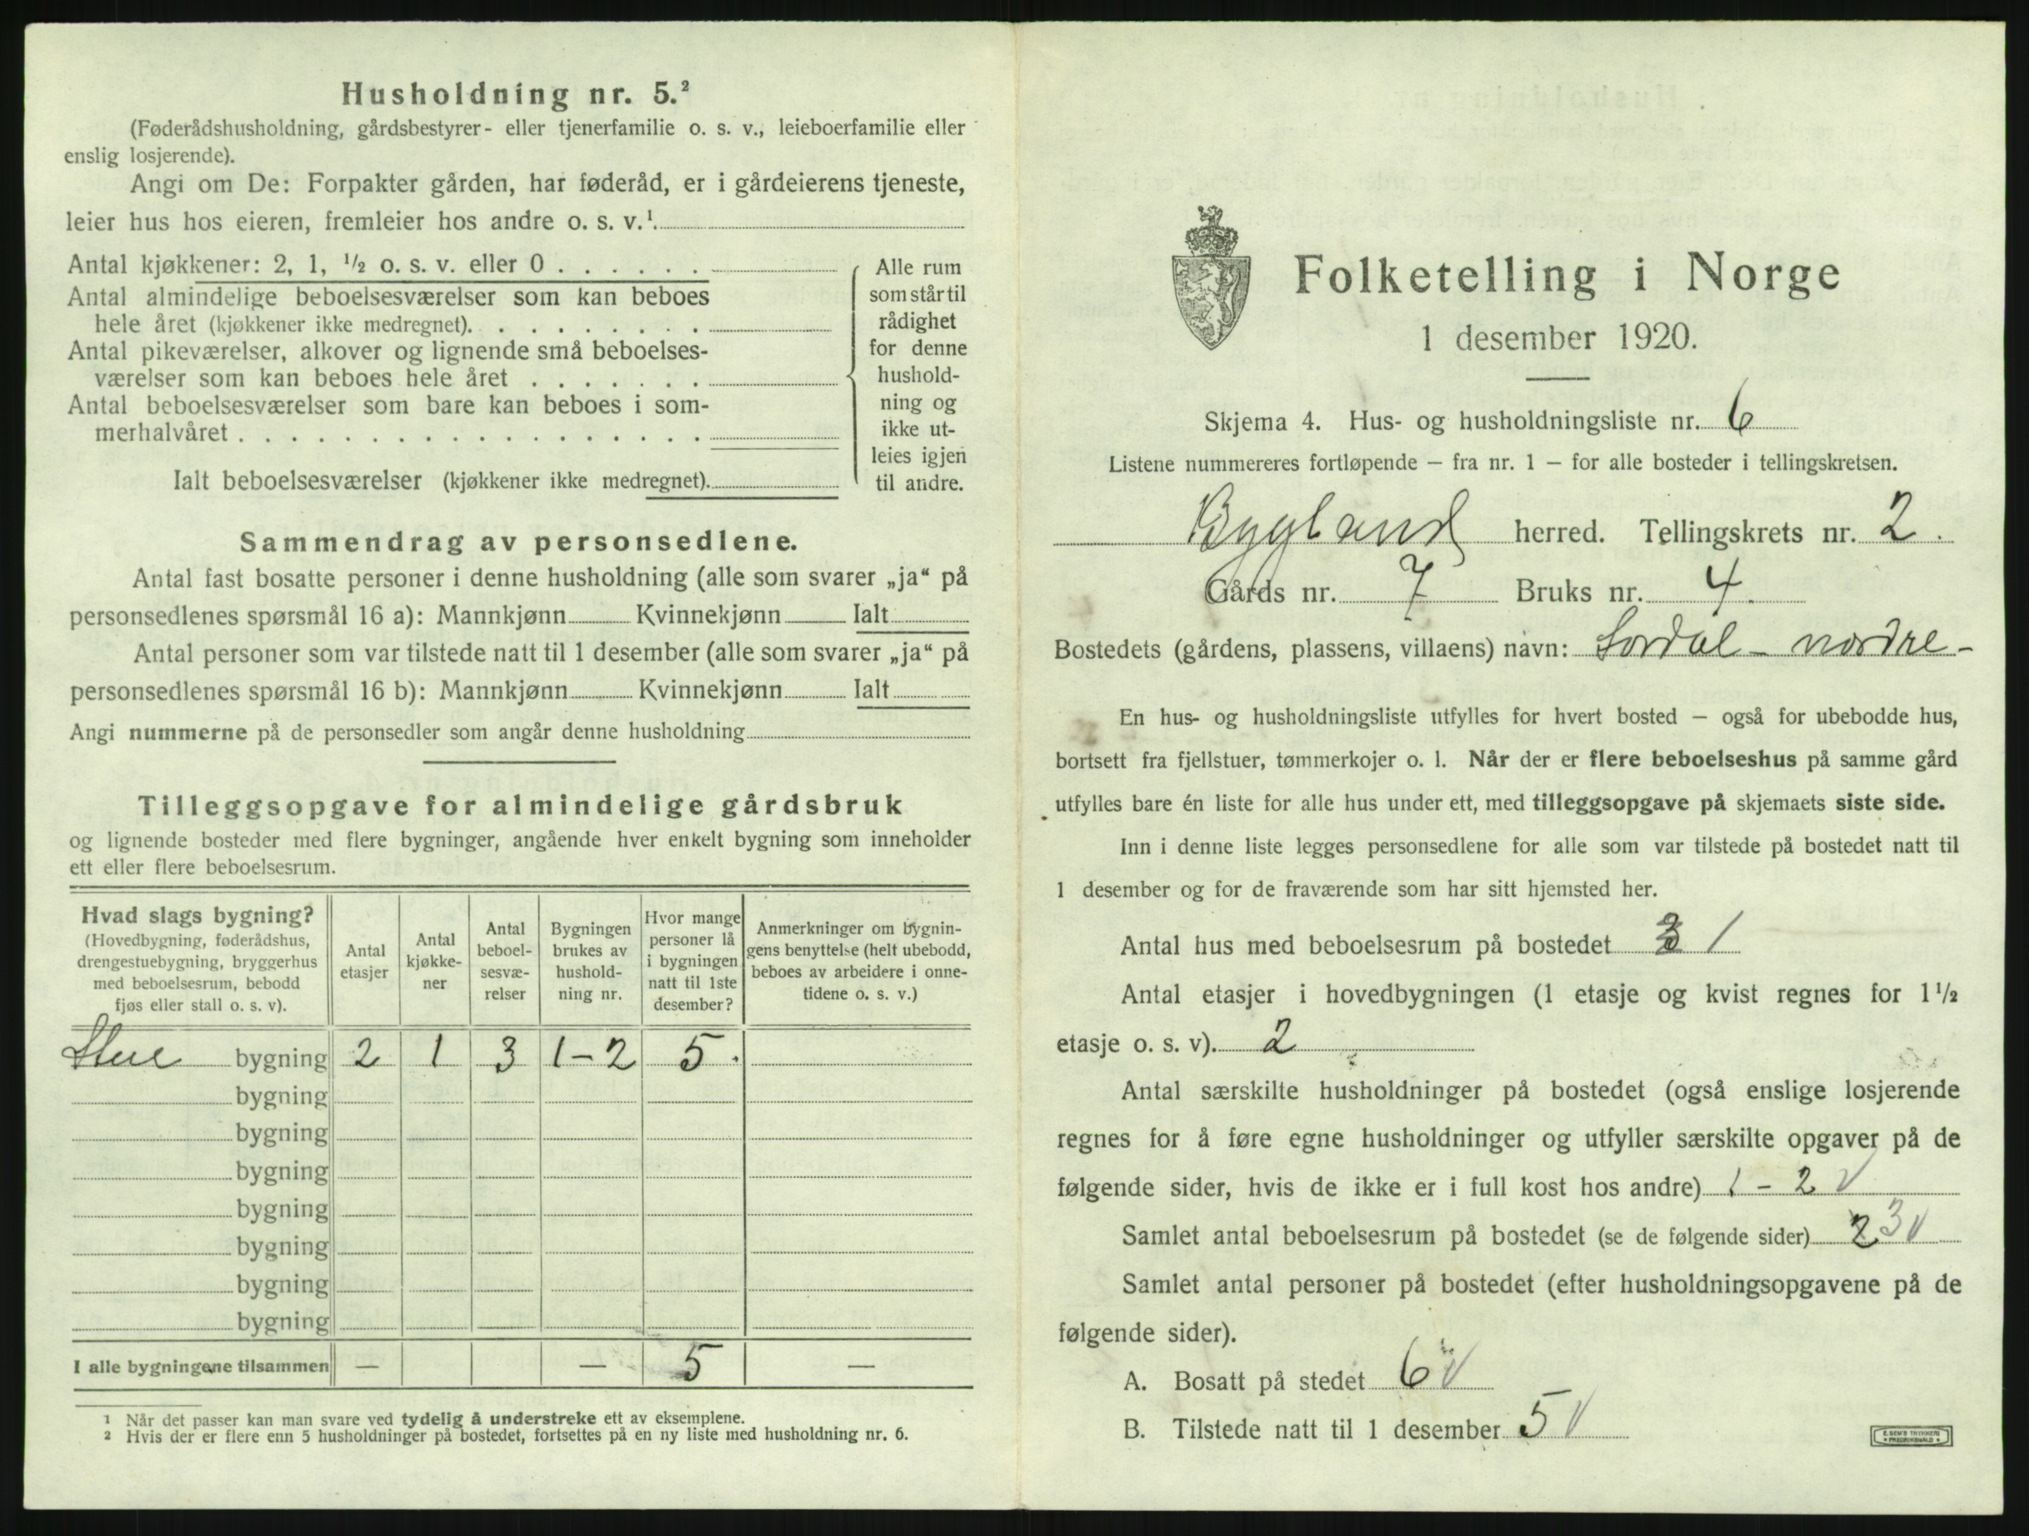 Husholdning nr. 5.²
(Føderådshusholdning, gårdsbestyrer- eller tjenerfamilie o. s. v., leieboerfamilie eller
enslig losjerende).
Angi om De: Forpakter gården, har føderåd, er i gårdeierens tjeneste,
leier hus hos eieren, fremleier hos andre o. s. v.¹
Antal kjøkkener: 2, 1, ½ o. s. v. eller 0 . . . . . .
Antal almindelige beboelsesværelser som kan beboes
hele året (kjøkkener ikke medregnet). . . . . . . . .
Antal pikeværelser, alkover og lignende små beboelses-
værelser som kan beboes hele året . . . . . . .
Antal beboelsesværelser som bare kan beboes i som-
merhalvåret . . . . . . . . . . . . . . . . . .
Ialt beboelsesværelser (kjøkkener ikke medregnet).
Alle rum
som står til
rådighet
for denne
hushold-
ning og
ikke ut-
leies igjen
til andre.
Sammendrag av personsedlene.
Antal fast bosatte personer i denne husholdning (alle som svarer „ja“ på
personsedlenes spørsmål 16 a): Mannkjønn Kvinnekjønn Ialt
Antal personer som var tilstede natt til 1 desember (alle som svarer „ja“ på
personsedlenes spørsmål 16 b): Mannkjønn Kvinnekjønn Ialt
Angi nummerne på de personsedler som angår denne husholdning
Tilleggsopgave for almindelige gårdsbruk
og lignende bosteder med flere bygninger, angående hver enkelt bygning som inneholder
ett eller flere beboelsesrum.
Hvad slags bygning?
(Hovedbygning, føderådshus,
drengestuebygning, bryggerhus
med beboelsesrum, bebodd
fjøs eller stall o. s. v).
Antal
etasjer
Antal
kjøkke-
ner
Antal
beboel-
sesvæ-
relser
Bygningen
brukes av
hushold-
ning nr.
Hvor mange
personer lå
i bygningen
natt til 1ste
desember?
Anmerkninger om bygnin-
gens benyttelse (helt ubebodd,
beboes av arbeidere i onne-
tidene o. s. v.)
Stue bygning 2 1 3 1-2 5.
bygning
bygning
bygning
bygning
bygning
bygning
bygning
I alle bygningene tilsammen — — 5 —
¹ Når det passer kan man svare ved tydelig å understreke ett av eksemplene.
² Hvis der er flere enn 5 husholdninger på bostedet, fortsettes på en ny liste med husholdning nr. 6.
Folketelling i Norge
1 desember 1920.
Skjema 4. Hus- og husholdningsliste nr. 6
Listene nummereres fortløpende — fra nr. 1 — for alle bosteder i tellingskretsen.
Bygland herred. Tellingskrets nr. 2.
Gårds nr. 7 Bruks nr. 4.
Bostedets (gårdens, plassens, villaens) navn: Sordal - nordre -
En hus- og husholdningsliste utfylles for hvert bosted — også for ubebodde hus,
bortsett fra fjellstuer, tømmerkojer o. l. Når der er flere beboelseshus på samme gård
utfylles bare én liste for alle hus under ett, med tilleggsopgave på skjemaets siste side.
Inn i denne liste legges personsedlene for alle som var tilstede på bostedet natt til
1 desember og for de fraværende som har sitt hjemsted her.
Antal hus med beboelsesrum på bostedet 3 1
Antal etasjer i hovedbygningen (1 etasje og kvist regnes for 1½
etasje o. s. v). 2
Antal særskilte husholdninger på bostedet (også enslige losjerende
regnes for å føre egne husholdninger og utfyller særskilte opgaver på de
følgende sider, hvis de ikke er i full kost hos andre) 1 - 2 V
Samlet antal beboelsesrum på bostedet (se de følgende sider) 2 3 V
Samlet antal personer på bostedet (efter husholdningsopgavene på de
følgende sider).
A. Bosatt på stedet 6 V
B. Tilstede natt til 1 desember 5 V
E. SEM'S TRYKKERI
FREDRIKSHALD